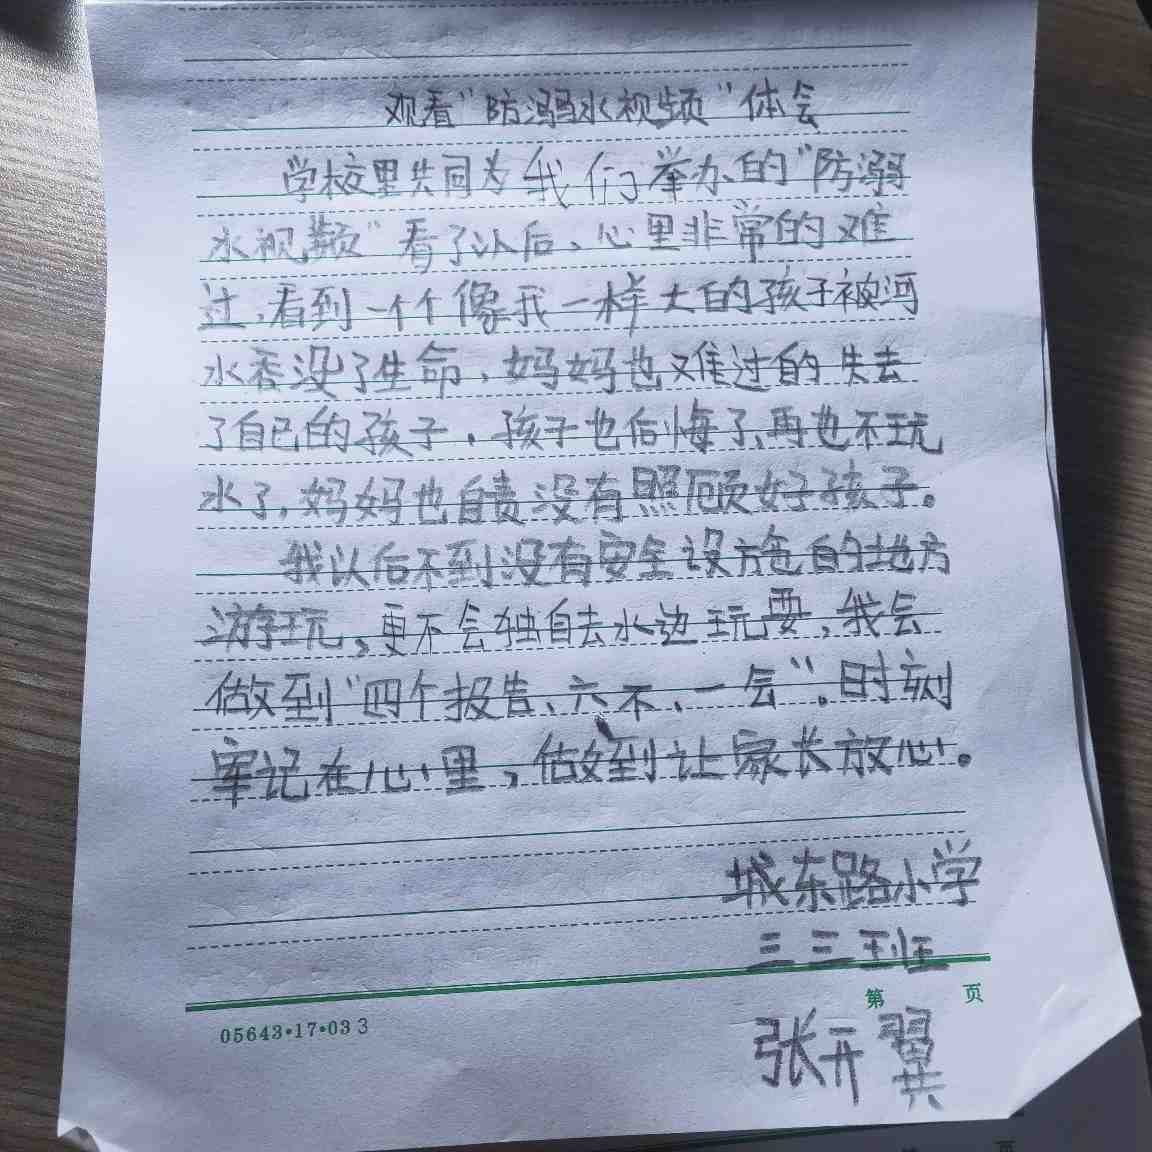 观看"防溺水视频"体会
学校里共同为我们举办的"防溺
水视频"看了以后、心里非常的难
过,看到一个个像我一样大的孩子被河
水吞没了生命,妈妈也难过的失去
了自己的孩子,孩子也后悔了、再也不玩
水了,妈妈也自责没有照顾好孩子。
我以后不到没有安全设施的地方
游玩,更不会独自去水边玩耍,我会
做到"四个报告、六不、一会"。时刻
牢记在心里,做到让家长放心。
城东路小学
三三班
第 页
05643•17•033
张开翼
页